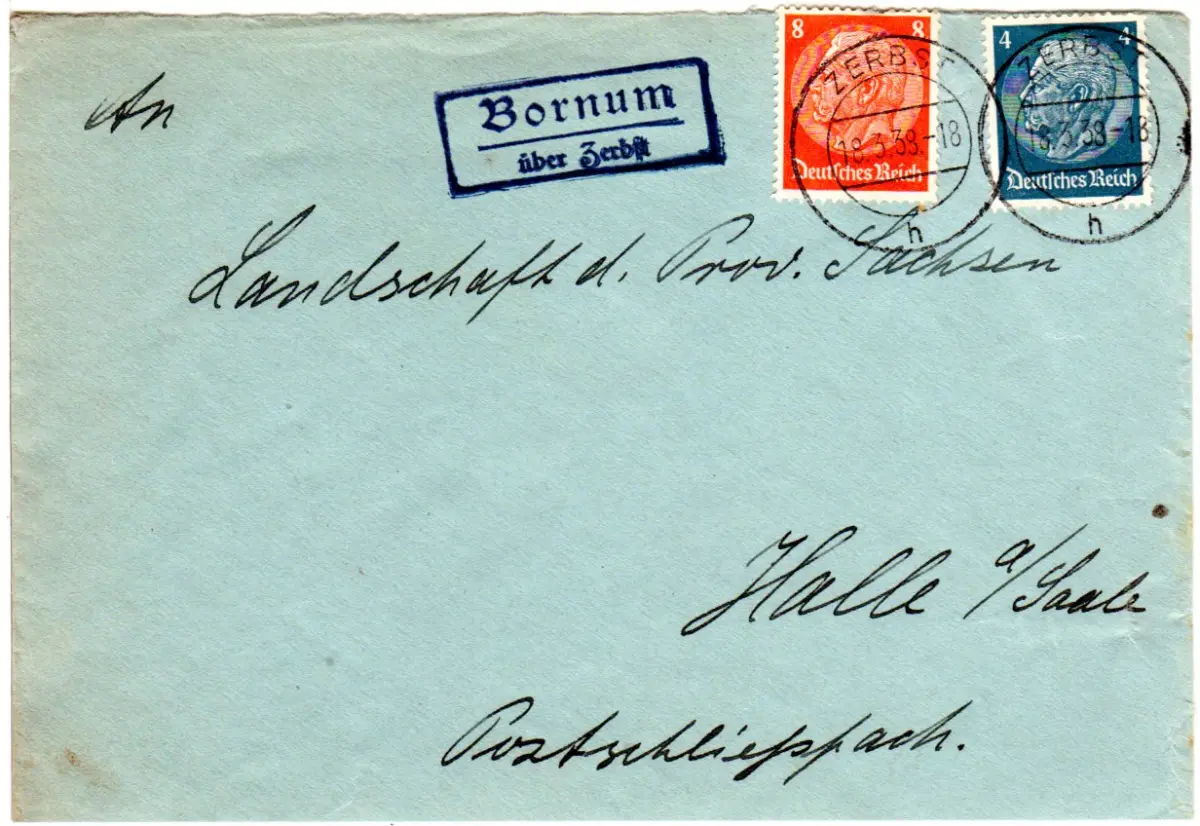 An
Bornum
über Zerbst
8 8
Deutsches Reich
4 4
Deutsches Reich
ZERBST
18.3.38.-18
h
ZERBST
18.3.38.-18
h
Landschaft d. Prov. Sachsen
Halle a/Saale
Postschließfach.